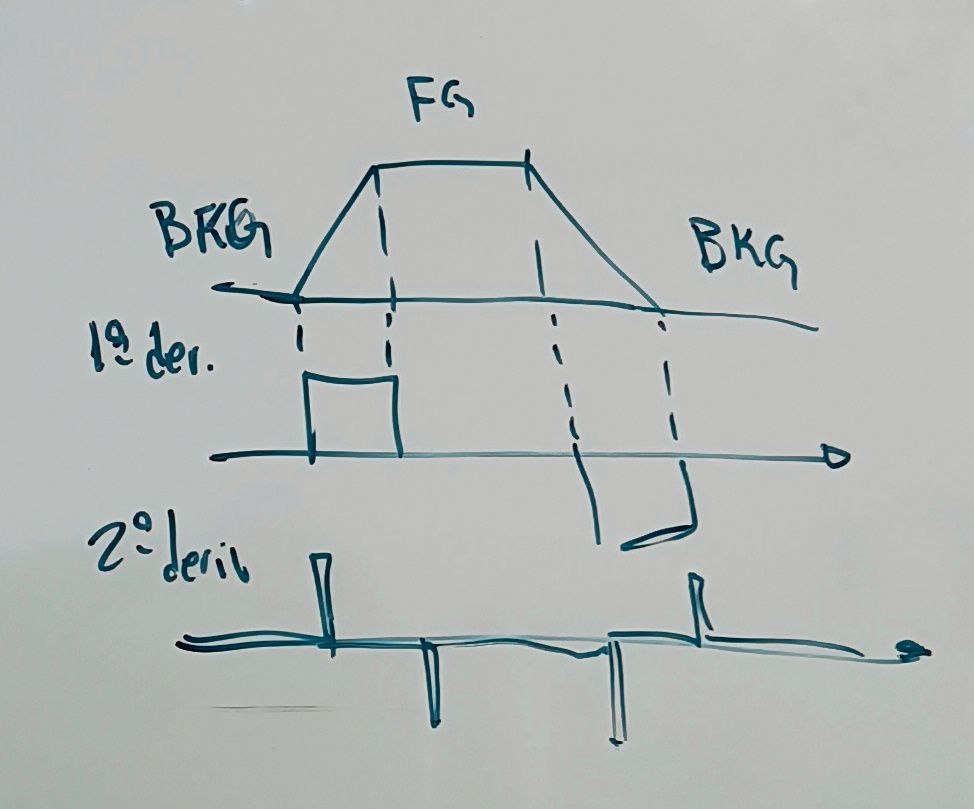 FG
BKG
BKG
1ª der.
2ª deriv